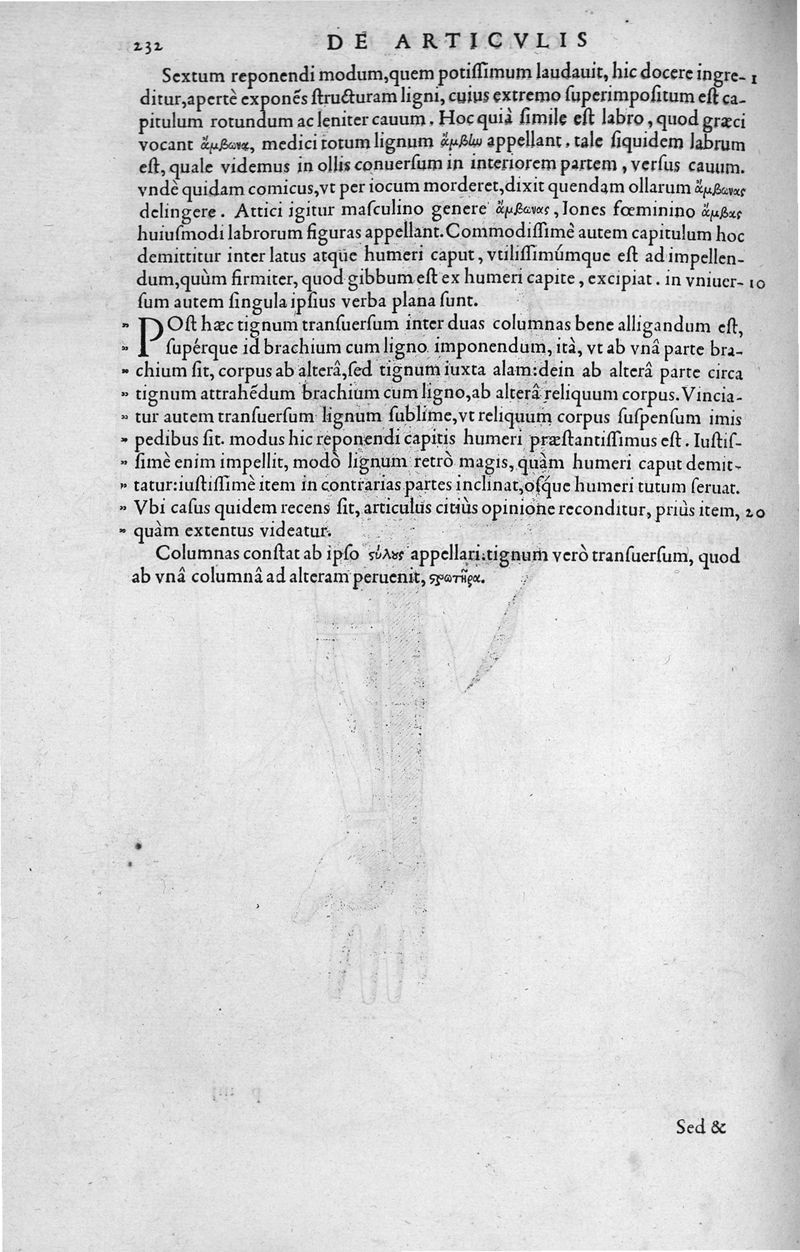 232 DE ARTICVLIS
Sextum reponendi modum,quem potiſſimum laudauit, hic docere ingre- 1
ditur,apertè exponẽs ſtructuram ligni, cuius extremo ſuperimpoſitum eſt ca-
pitulum rotundum ac leniter cauum. Hoc quià ſimile eſt labro, quod græci
vocant ἄμβωνα, medici totum lignum ἄμβην appellant. tale ſiquidem labrum
eſt, quale videmus in ollis conuerſum in interiorem partem, verſus cauum.
vndè quidam comicus,vt per iocum morderet,dixit quendam ollarum ἄμβωνας
delingere. Attici igitur maſculino genere ἄμβωνας, Iones fœminino ἄμβας
huiuſmodi labrorum figuras appellant. Commodiſſimè autem capitulum hoc
demittitur inter latus atque humeri caput, vtiliſſimúmque eſt ad impellen-
dum,quùm firmiter, quod gibbum eſt ex humeri capite, excipiat. in vniuer- 10
ſum autem ſingula ipſius verba plana ſunt.
" POſt hæc tignum tranſuerſum inter duas columnas bene alligandum eſt,
" ſupérque id brachium cum ligno imponendum, ità, vt ab vnâ parte bra-
" chium ſit, corpus ab alterâ,ſed tignum iuxta alam:dein ab alterâ parte circa
" tignum attrahẽdum brachium cum ligno,ab alterâ reliquum corpus. Vincia-
" tur autem tranſuerſum lignum ſublime,vt reliquum corpus ſuſpenſum imis
" pedibus ſit. modus hic reponendi capitis humeri præſtantiſſimus eſt. Iuſtiſ-
" ſimè enim impellit, modò lignum retrò magis, quàm humeri caput demit-
" tatur:iuſtiſſimè item in contrarias partes inclinat,oſq́ue humeri tutum ſeruat.
" Vbi caſus quidem recens ſit, articulus citiùs opinione reconditur, priùs item, 20
" quàm extentus videatur.
Columnas conſtat ab ipſo ϛύλους appellari:tignum verò tranſuerſum, quod
ab vnâ columnâ ad alteram peruenit, ϛρωτῆρα.
Sed &